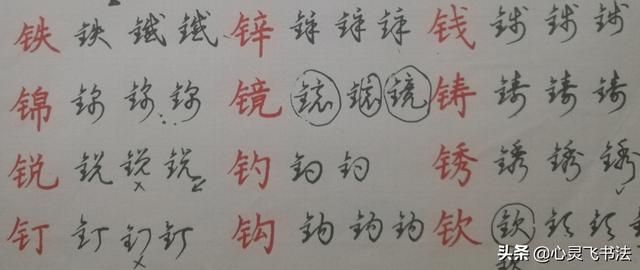 铁 铁 鐵 鐵 锌 锌 锌 锌 钱 钱 钱 钱
锦 锦 锦 锦 镜 镜 镜 镜 铸 铸 铸 铸
锐 锐 锐 锐 钓 钓 钓 锈 锈 锈 锈
钉 钉 钉 钉 钩 钩 钩 钩 钦 钦 钦 钦
头条 @心灵飞书法